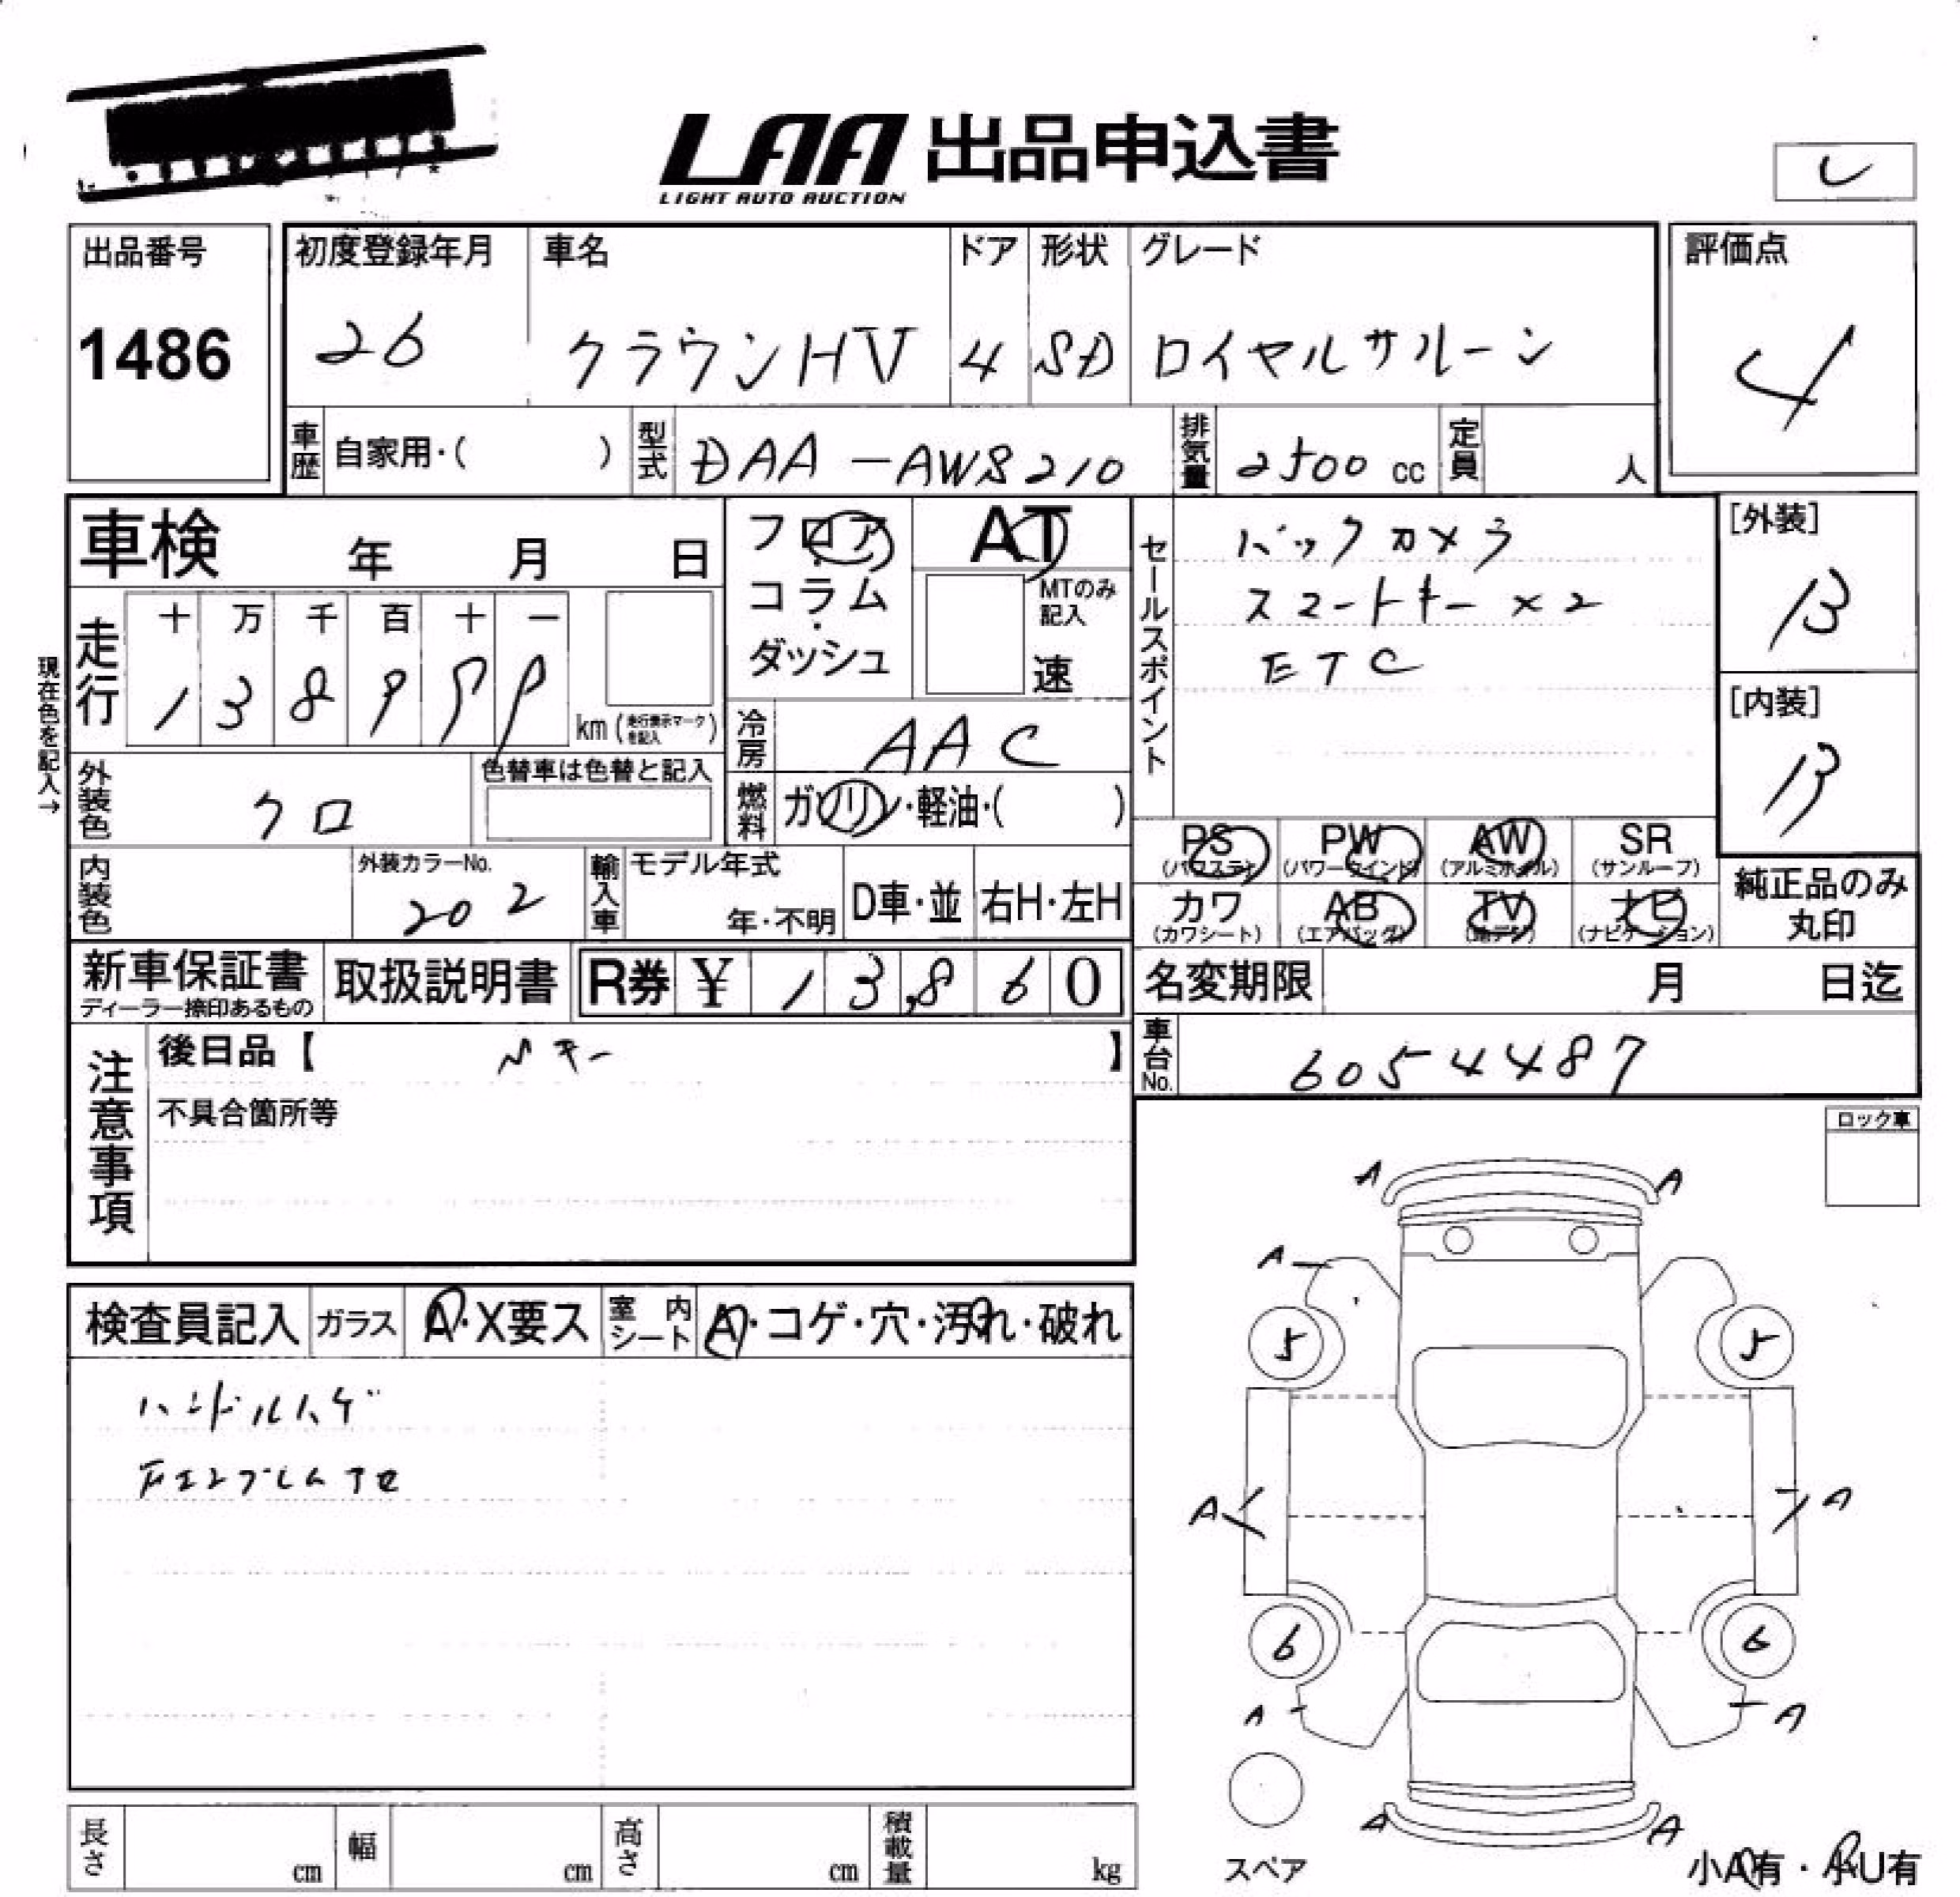 LAA 出品申込書
LIGHT AUTO AUCTION
し
出品番号
1486
初度登録年月 車名 ドア 形状 グレード
26 クラウンHV 4 SD ロイヤルサルーン
評価点
4
車歴 自家用・( ) 型式 DAA-AWS210 排気量 2500 cc 定員 人
車検 年 月 日
フロア
コラム
・
ダッシュ
AT
MTのみ
記入
速
セールスポイント
バックカメラ
スマートキー×2
ETC
[外装]
B
[内装]
B
現在色を記入→
走行
十 万 千 百 十 一
1 3 8 9
km (走行表示マークを記入)
冷房 AAC
外装色 クロ
色替車は色替と記入
燃料 ガソリン・軽油・( )
PS PW AW SR
(パワステ) (パワーウインド) (アルミホイル) (サンルーフ)
カワ AB TV ナビ
(カワシート) (エアバッグ) (地デジ) (ナビゲーション)
純正品のみ
丸印
内装色
外装カラーNo.
202
輸入車
モデル年式
年・不明
D車・並 右H・左H
新車保証書
ディーラー捺印あるもの
取扱説明書
R券 ¥ 13,860
名変期限 月 日迄
車台No. 6054487
注意事項
後日品【 】
不具合箇所等
ロック車
検査員記入 ガラス A・X要ス 室内シート A・コゲ・穴・汚れ・破れ
ハンドルハゲ
A A
A
5 5
A A
6 6
A A
A A
スペア
小A有・小U有
長さ cm 幅 cm 高さ cm 積載量 kg